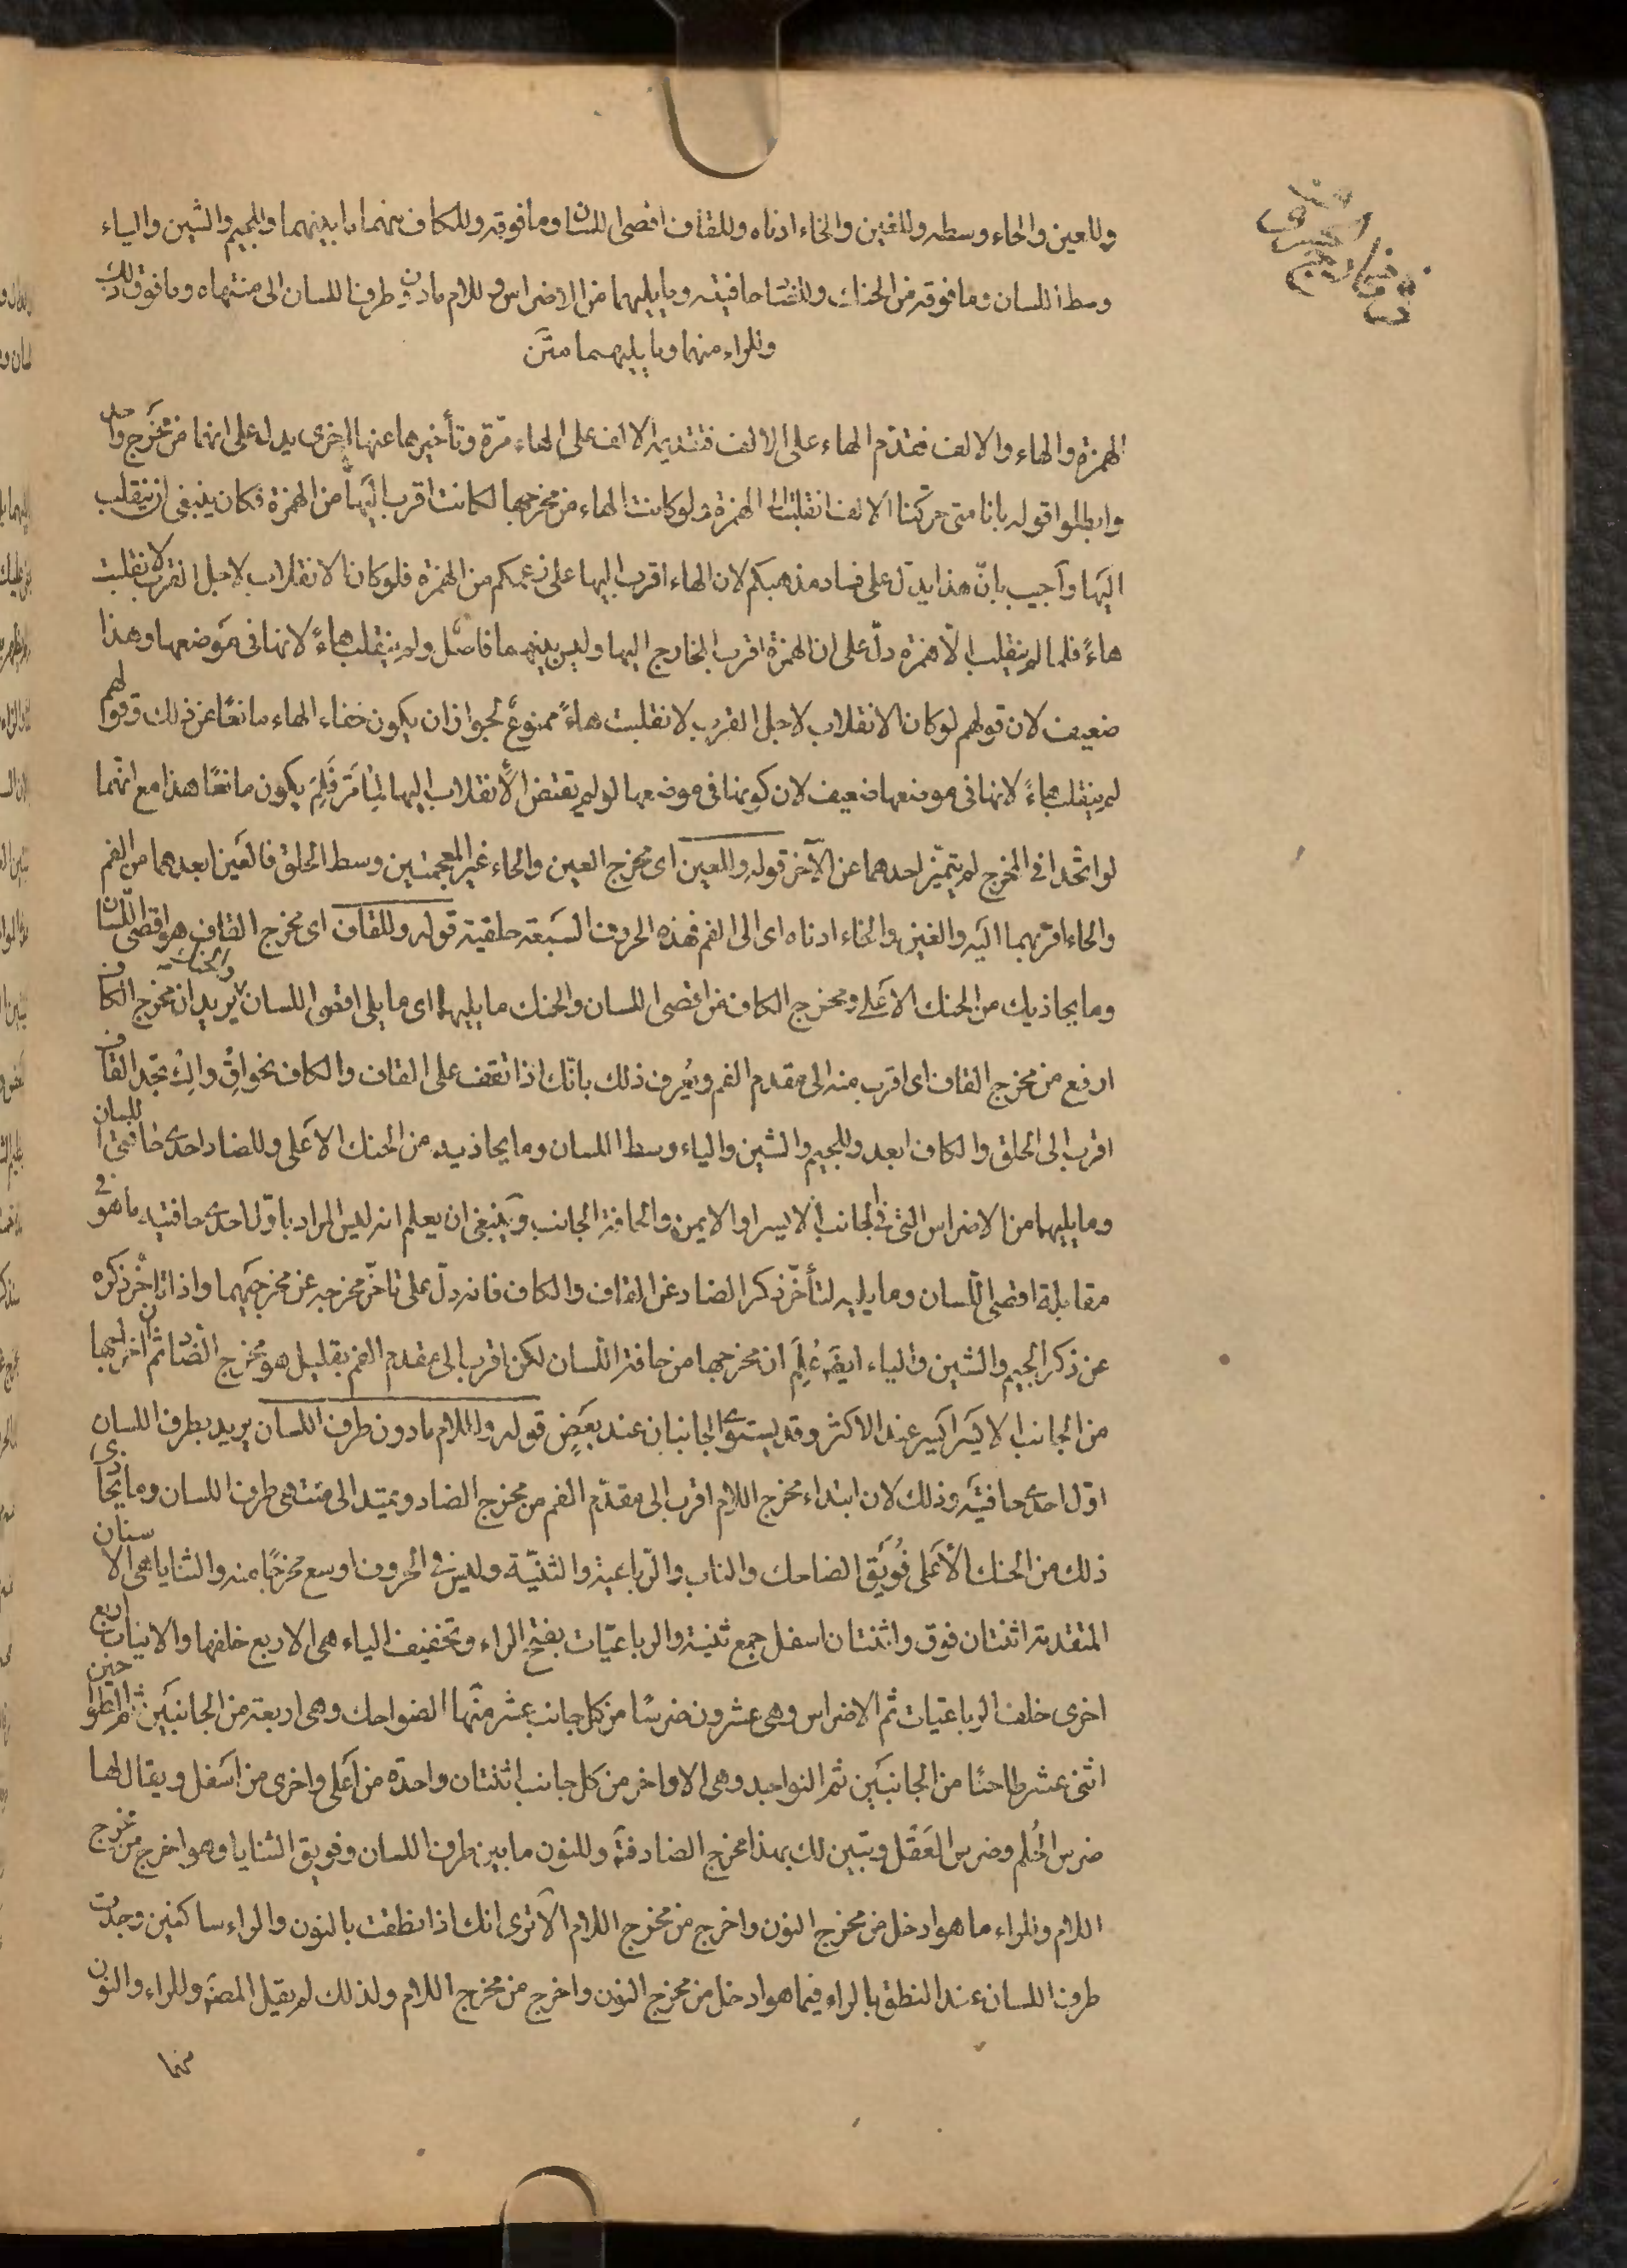 وللعين والحاء وسطه وللغين والخاء ادناه وللقاف اقصى اللسان وما فوقه وللكاف منهما ما يليهما وللجيم والشين والياء
وسط اللسان وما فوقه من الحنك وللضاد حافتيه وما يليهما من الاضراس وللام مادون طرف اللسان الى منتهاه وما فوق ذلك
وللراء منهما وما يليهما متن
الهمزة والهاء والالف فقدم الهاء على الالف فتقديم الالف على الهاء مرة وتأخيرهما عنها اخرى يدل على انهما من مخرج واحد
وابطلوا قوله بانا متى حركنا الالف انقلبت الى الهمزة ولو كانت الهاء من مخرجها لكانت اقرب اليها من الهمزة فكان ينبغى ان ينقلب
اليها واجيب بانّ هذا يدل على فساد مذهبكم لان الهاء اقرب اليها على زعمكم من الهمزة فلو كان الانقلاب لاجل القرب لانقلبت
هاءً فلما لم ينقلب الّا همزة دلّ على ان الهمزة اقرب المخارج اليها وليس بينهما فاصل ولم ينقلب هاءً لانها فى موضعها وهذا
ضعيف لان قولهم لو كان الانقلاب لاجل القرب لانقلبت هاءً ممنوع لجواز ان يكون خفاء الهاء مانعًا عن ذلك وقولهم
لم ينقلب هاءً لانها فى موضعها ضعيف لان كونها فى موضعها لو لم يقتض الانقلاب اليها لما مر فلم يكون مانعًا هذا مع انهما
لو اتحدا فى المخرج لم يتميّز احدهما عن الآخر قوله وللعين اى مخرج العين والحاء غير المعجمتين وسط الحلق فالعين ابعدهما من الفم
والحاء اقربهما اليه والغين والخاء ادناه اى الى الفم فهذه الحروف السبعة حلقية قوله وللقاف اى مخرج القاف هو اقصى اللسان
وما يحاذيك من الحنك الاعلى ومخرج الكاف من اقصى اللسان والحنك ما يليهما اى ما يلى اقصى اللسان والحنك يريد ان مخرج الكاف
ارفع من مخرج القاف اى اقرب منه الى مقدم الفم ويُعرف ذلك بانّك اذا تقف على القاف والكاف نحو اِقْ واِكْ تجد القاف
اقرب الى الحلق والكاف ابعد وللجيم والشين والياء وسط اللسان وما يحاذيه من الحنك الاعلى وللضاد احدى حافتى اللسان
وما يليهما من الاضراس التى فى الجانب الايسر او الايمن والحافة الجانب وينبغى ان يعلم انه ليس المراد باوّل احدى حافتيه ما هو فى
مقابلة اقصى اللّسان وما يليه لتأخّر ذكر الضاد عن القاف والكاف فانه دلّ على تاخّر مخرجه عن مخرجيهما واذا تاخّر ذكره
عن ذكر الجيم والشين والياء ايضًا عُلِمَ ان مخرجها من حافة اللسان لكن اقرب الى مقدم الفم بقليل هو مخرج الضاد ثم ان اخراجها
من الجانب الايسر ايسر عند الاكثر وقد يستوى الجانبان عند بعض قوله وللام مادون طرف اللسان يريد بطرف اللسان
اوّل احدى حافتيه وذلك لان ابتداء مخرج اللام اقرب الى مقدّم الفم من مخرج الضاد ويمتد الى منتهى طرف اللسان وما يحاذى
ذلك من الحنك الأعلى فُوَيْق الضاحك والناب والرّباعية والثنيّة وليس فى الحروف اوسع مخرجًا منه والثنايا هى الاسنان
المتقدمة اثنتان فوق واثنتان اسفل جمع ثنية والرباعيّات بفتح الراء وتخفيف الياء هى الاربع خلفها والانياب اربع
اخرى خلف الرباعيّات ثم الاضراس وهى عشرون ضرسًا من كل جانب عشر منها الضواحك وهى اربعة من الجانبين ثم الطواحين
اثنى عشر طاحنًا من الجانبين ثم النواجد وهى الاواخر من كل جانب اثنتان واحدة من اعلى واخرى من اسفل ويقال لها
ضرس الحُلم وضرس العَقْل وتبيّن لك بهذا مخرج الضاد وللنون ما بين طرف اللسان وفويق الثنايا وهو اخرج من مخرج
اللام وللراء ما هو ادخل من مخرج النون واخرج من مخرج اللام الا ترى انك اذا نطقت بالنون والراء ساكنين وجدت
طرف اللسان عند النطق بالراء فيما هو ادخل من مخرج النون واخرج من مخرج اللام ولذلك لم يقل المصنف وللراء والنون
منهما